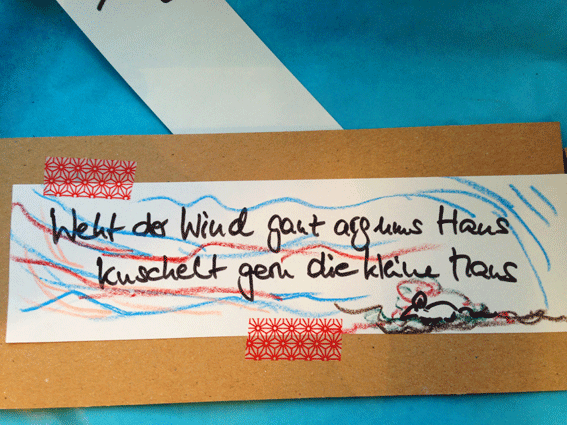 Weht der Wind ganz arg ums Haus
kuschelt gern die kleine Maus